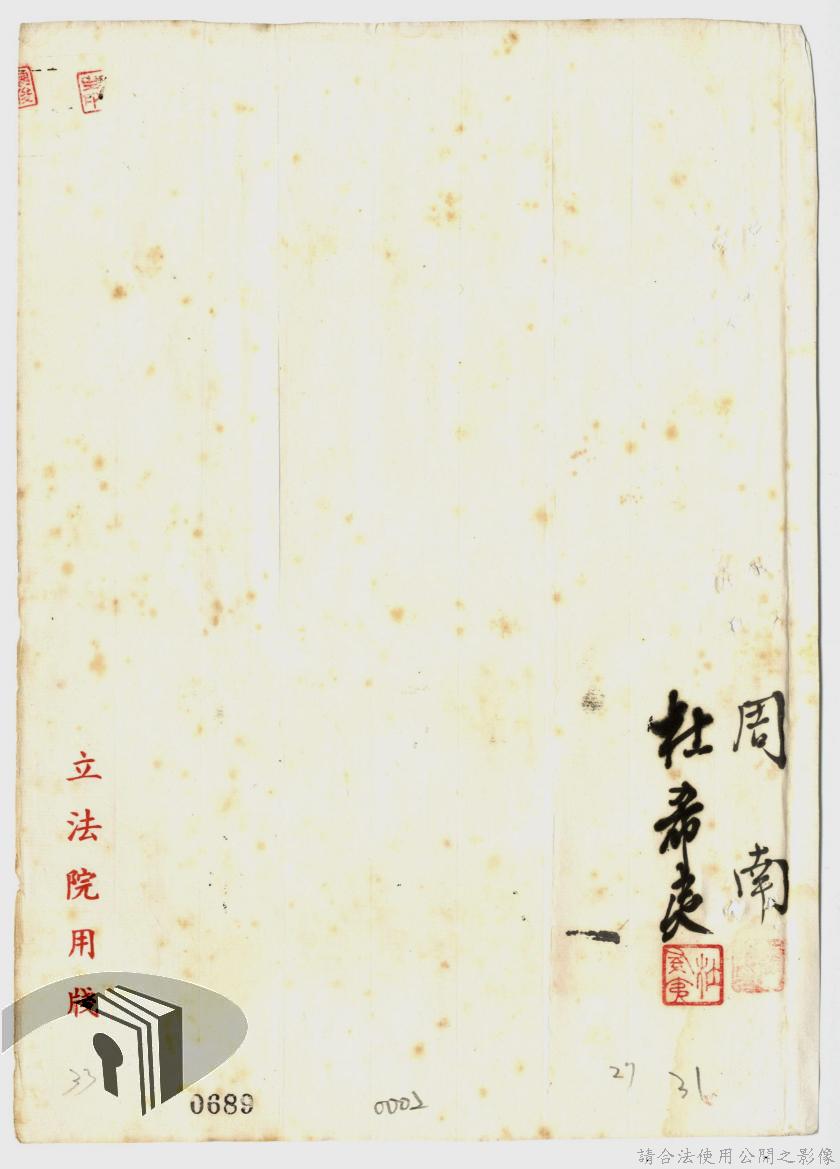 周南
杜希夷
立法院用牋
33
0689
0002
27
31
請合法使用公開之影像